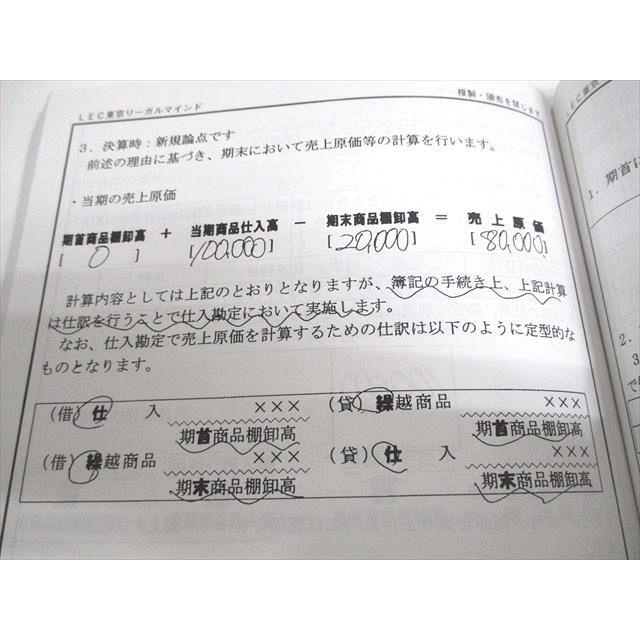 LEC東京リーガルマインド
複製・頒布を禁じます
LEC東京
3．決算時：新規論点です
前述の理由に基づき、期末において売上原価等の計算を行います。
・当期の売上原価
期首商品棚卸高 ＋ 当期商品仕入高 － 期末商品棚卸高 ＝ 売上原価
[ 0 ] [100,000] [20,000] [80,000]
計算内容としては上記のとおりとなりますが、簿記の手続き上、上記計算
は仕訳を行うことで仕入勘定において実施します。
なお、仕入勘定で売上原価を計算するための仕訳は以下のように定型的な
ものとなります。
(借) 仕 入 ××× (貸) 繰越商品 ×××
期首商品棚卸高 期首商品棚卸高
(借) 繰越商品 ××× (貸) 仕 入 ×××
期末商品棚卸高 期末商品棚卸高
1．期首
2．
3